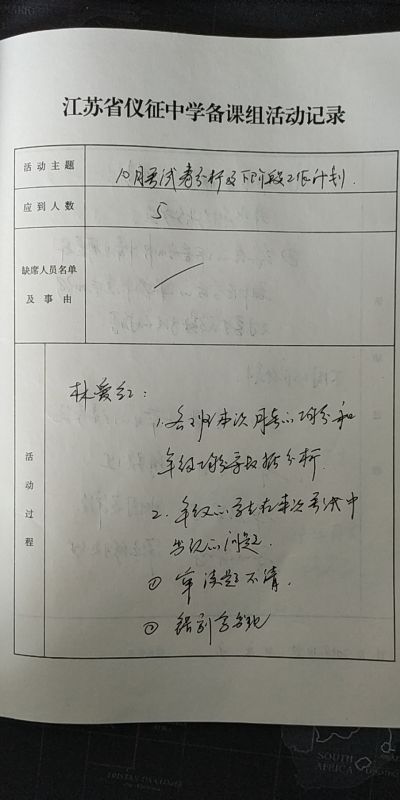 江苏省仪征中学备课组活动记录
活动主题
10月考试卷分析及下阶段工作计划.
应到人数
5
缺席人员名单
及事由
活动过程
林爱红:
1. 各班本次月考的均分和
年级均分
分析.
2. 年级的学生在本次考试中
出现的问题.
① 审读题不清.
②